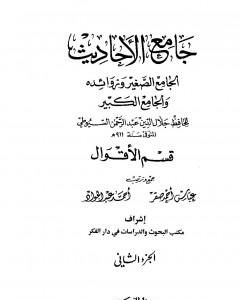 جامع الأحاديث
الجامع الصغير وزوائده
والجامع الكبير
للحافظ جلال الدين عبد الرحمن السيوطي
المتوفى سنة ٩١١هـ
قسم الأقوال
جمع وترتيب
عباس أحمد صقر أحمد عبد الجواد
إشراف
مكتب البحوث والدراسات في دار الفكر
الجزء الثاني